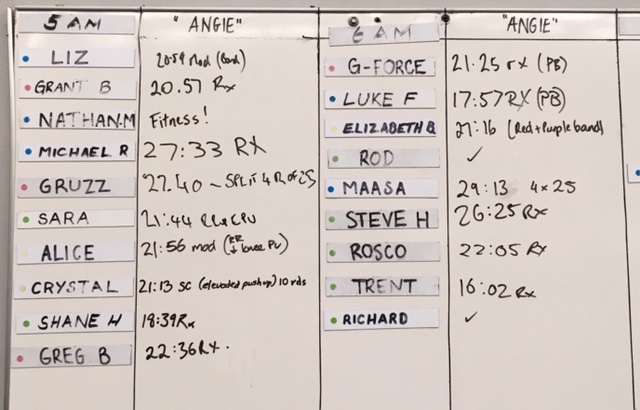 5 AM "ANGIE"
LIZ 20.59 Mod (Band)
GRANT B 20.57 Rx
NATHAN.M Fitness!
MICHAEL R 27:33 RX
GRUZZ 27.40 - SPLIT 4 R OF 25
SARA 21:44
ALICE 21:56 mod (RR ↓ knee PU)
CRYSTAL 21:13 SC (elevated pushup) 10 rds
SHANE H 18:39 Rx
GREG B 22:36 RX.
6 AM "ANGIE"
G-FORCE 21.25 rx (PB)
LUKE F 17:57 RX (PB)
ELIZABETH B 27:16 (Red+Purple band)
ROD ✓
MAASA 29:13 4x25
STEVE H 26:25 Rx
ROSCO 22:05 Rx
TRENT 16:02 Rx
RICHARD ✓